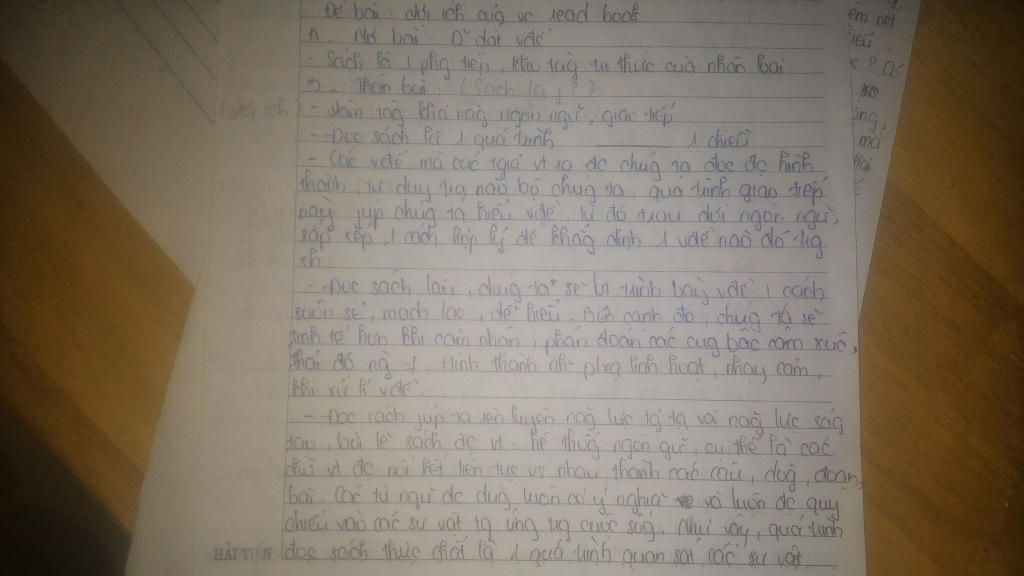 Đề bài: Lợi ích của vc read book
A - Mở bài: Dẫn dắt vđề
- Sách là 1 phg tiện, kho tàg tri thức của nhân loại
B - Thân bài: (Sách là j?)
(lợi ích) - Làm tăg khả năg ngôn ngữ, giao tiếp
- Đọc sách là 1 quá trình ______ 1 chiều
- Các vđề mà các tgiả vt ra đc chúg ta đọc đc hình
thành, tư duy trg não bộ chúg ta, quá trình giao tiếp
này júp chúg ta hiểu vđề, từ đó trau dồi ngôn ngữ,
sắp xếp 1 cách hợp lý để khẳg định 1 vđề nào đó trg
- Đọc sách lâu, chúg ta sẽ trình bày vđề 1 cách
suôn sẻ, mạch lạc, dễ hiểu. cạnh đó, chúg ta sẽ
tinh tế hơn khi cảm nhận, phán đoán các cug bậc cảm xúc,
thái độ ng ≠. Hình thành nhữ plxạ linh hoạt, nhạy cảm,
khi xử lí vđề.
- Đọc sách júp ta rèn luyện năg lực tg tg và năg lực ság
tạo, bởi lẽ sách đc vt = hệ thốg ngôn ngữ, cụ thể là các
chữ vt đc nối kết liên tục vs nhau thành các câu, dòg, đoạn,
bài. Các từ ngữ đc dùg luôn có ý nghĩa và luôn đc quy
chiếu vào các sự vật tg ứng trg cuộc sốg. Như vậy, quá trình
HẢI TIẾN đọc sách thực chất là 1 quá trình quan sát các sự vật